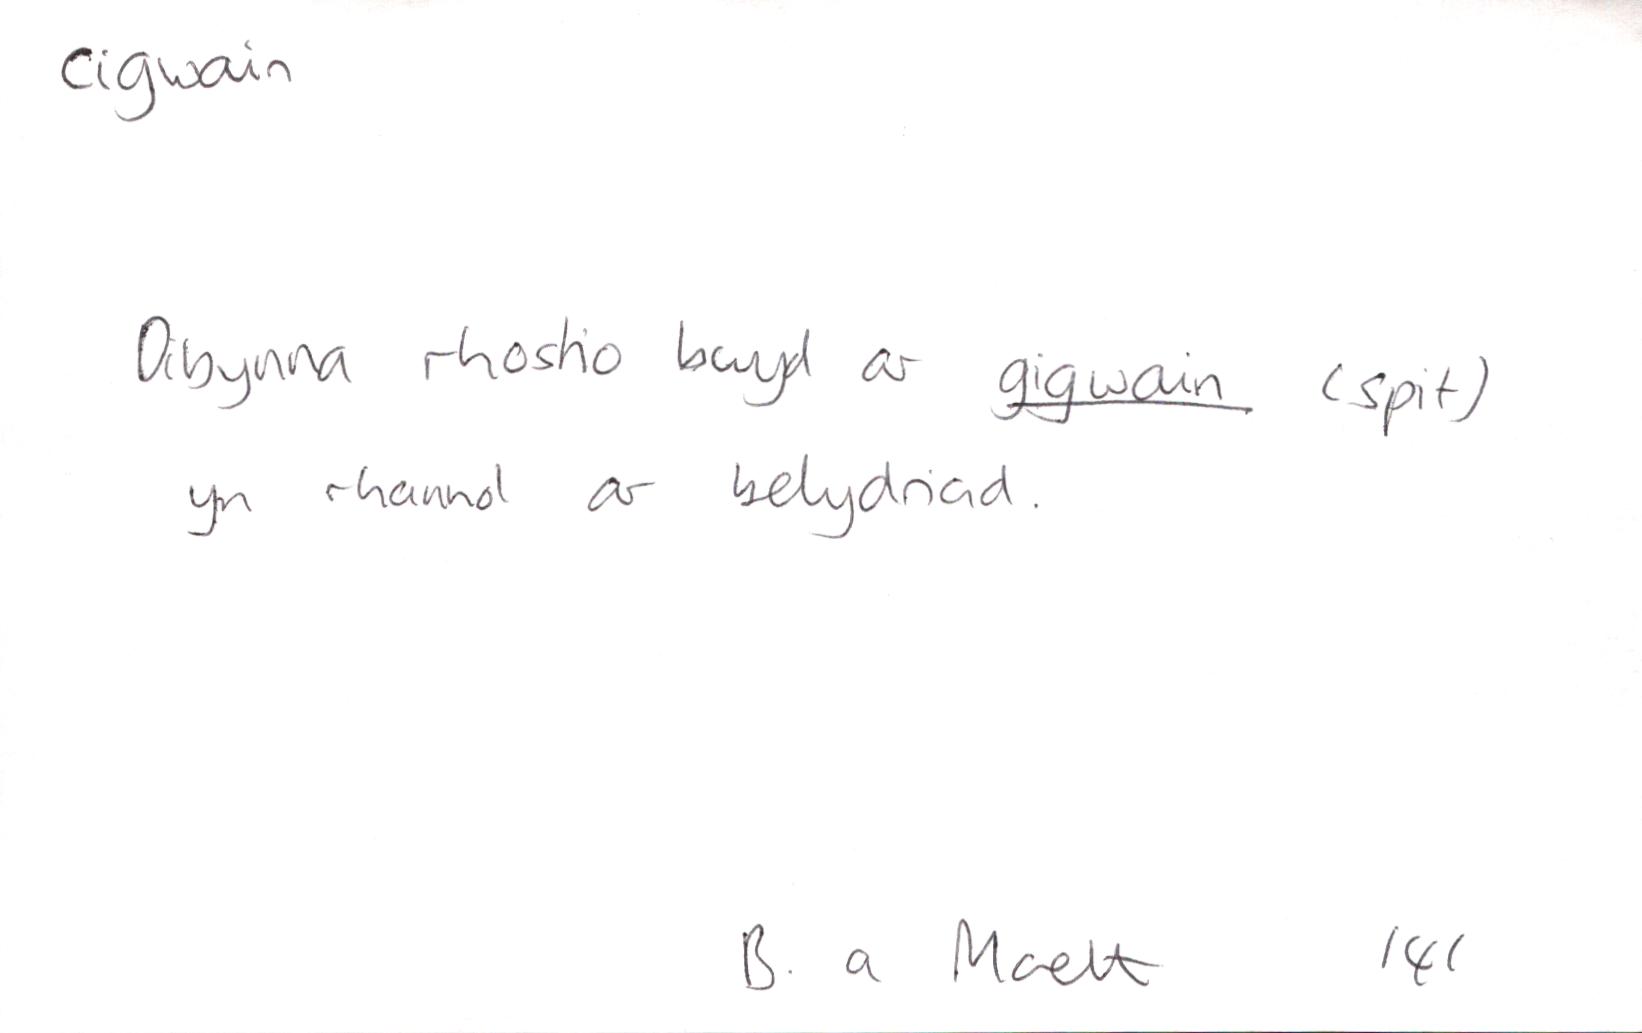 cigwain
Dibynna rhostio bwyd ar gigwain (spit)
yn rhannol ar belydriad.
B. a Maeth 141